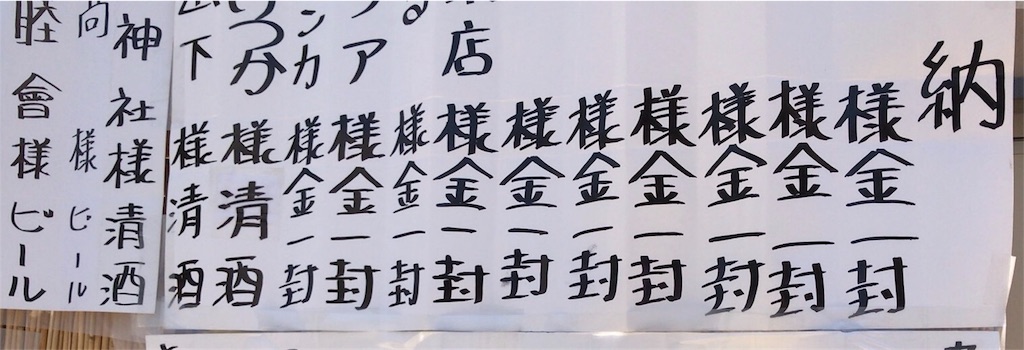 納
様金一封
様金一封
様金一封
様金一封
様金一封
様金一封
店様金一封
る様金一封
ア様金一封
ンカ様金一封
つか様清酒
下様清酒
神社様清酒
尚様ビール
睦會様ビール